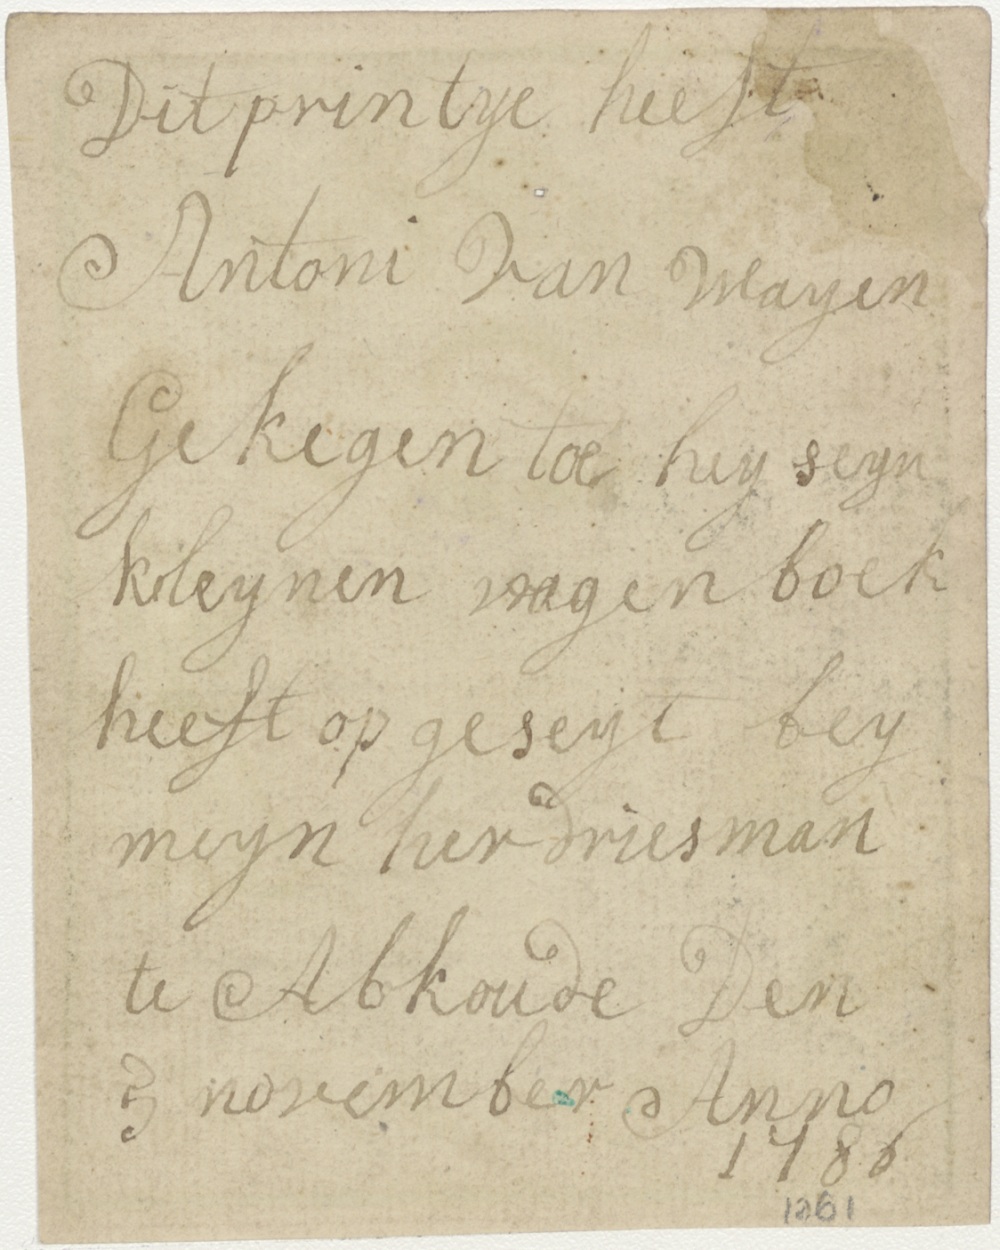 Dit printye heeft
Antoni Van Wayen
Gekegen toe hey seyn
kleynen vragen boek
heeft op geseyt bey
meyn her driesman
te Abkoude Den
3 november Anno
1786
1261